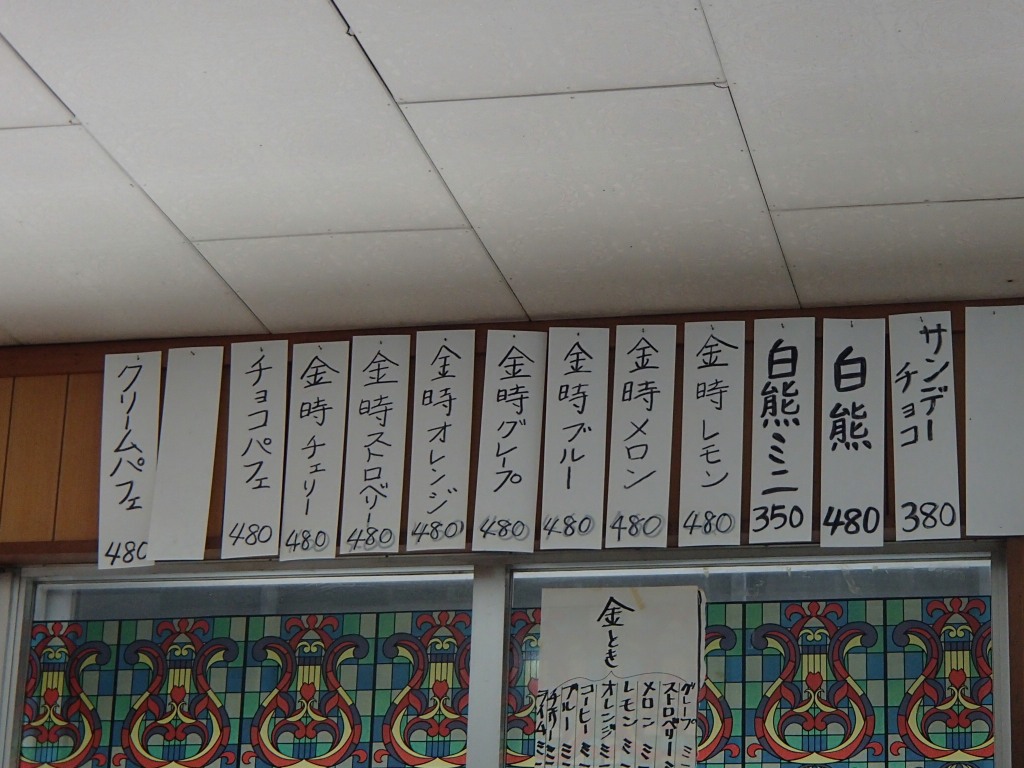 サンデー
チョコ
380
白熊
480
白熊ミニ
350
金時レモン
480
金時メロン
480
金時ブルー
480
金時グレープ
480
金時オレンジ
480
金時ストロベリー
480
金時チェリー
480
チョコパフェ
480
クリームパフェ
480
金とき
グレープ ミニ
ストロベリー ミ
メロン ミニ
レモン ミニ
オレンジ ミニ
コーヒー ミニ
ブルー ミニ